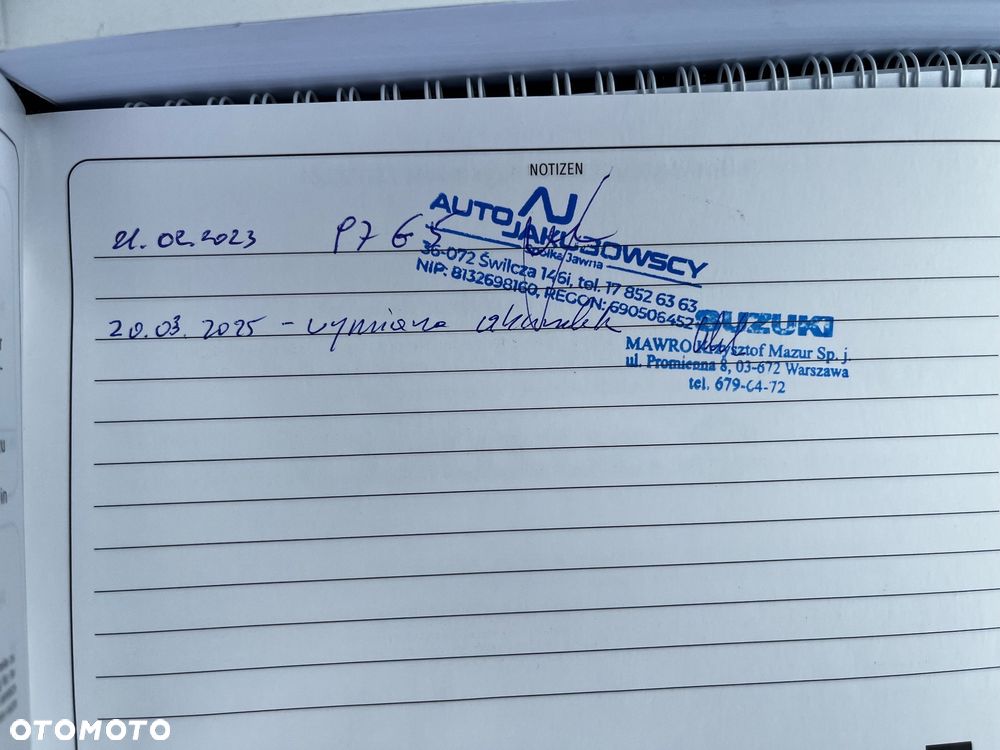 NOTIZEN
21.02.2023 P7 G5
AUTO JAKUBOWSCY
Spółka Jawna
36-072 Świlcza 146i, tel. 17 852 63 63
NIP: 8132698160, REGON: 690506452
20.03.2025 - wymiana
SUZUKI
MAWRO Krzysztof Mazur Sp. j.
ul. Promienna 8, 03-672 Warszawa
tel. 679-64-72
OTOMOTO